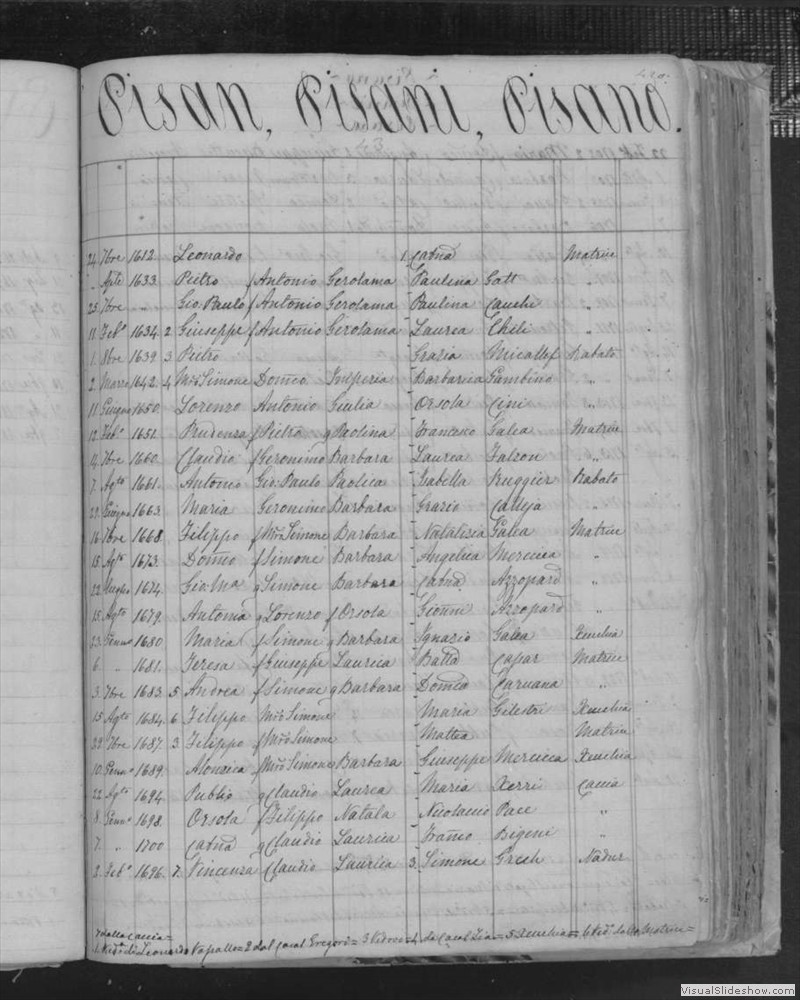 Pisan, Pisani, Pisano.
24. 7bre 1612. Leonardo 1. Catnd Matrice
" Aple 1633. Pietro f Antonio Gerolama Paulina Gatt "
25. 7bre Gio: Paulo f Antonio Gerolama Paulina Cauchi "
11. Feb° 1634. 2 Giuseppe f Antonio Girolama Laurea Theli "
1. 8bre 1639. 3 Pietro Grazia Micallef Rabato
2. Marzo 1642. 4 Mro Simone Domco Imperia Barbarica Gambino "
11. Giugno 1650. Lorenzo Antonio Giulia Orsola Cini "
12. Feb° 1651. Prudenza f Pietro q Paolina Francesco Galea Matrice
4. 7bre 1660. Claudio f Geronimo Barbara Laurea Falzon "
7. Agto 1661. Antonio Gio: Paulo Paolica Isabella Ruggier Rabato
22. Giugno 1663. Maria Geronimo Barbara Grazio Calleja "
16. 7bre 1668. Filippo f Mro Simone Barbara Natalizia Galea Matrice
15. Agto 1673. Domco f Simone Barbara Angelica Mercieca "
22. Luglio 1674. Gio: Ma q Simone Barbara Catnd Azzopard "
15. Agto 1679. Antonia q Lorenzo f Orsola Gionni Azzopard "
23. Genno 1680. Maria f Simone q Barbara Ignazio Galea Xeuchia
6. " 1681. Teresa f Giuseppe Laurica Batta Capar Matrice
3. 7bre 1683. 5 Andrea f Simone q Barbara Domca Caruana "
15. Agto 1684. 6 Filippo Mro Simone Maria Gilestri Xeuchia
22. 7bre 1687. 3 Filippo f Mro Simone Mattea Matrice
10. Genno 1689. Alonzica f Mro Simone Barbara Giuseppe Mercieca Xeuchia
22. Agto 1694. Publio q Claudio Laurea Maria Xerri Caccia
8. Genno 1698. Orsola f Filippo Natala Nicolaccio Pace "
7. " 1700 Catnd q Claudio Laurica Franco Bigeni "
2. Feb° 1696. 7. Vincenza Claudio Laurica 3. Simone Grech Nadur
7 dalla Caccia =
1. Vida di Leonardo Vapallo = 2 dal Casal Gregori = 3 Vidovo = 4 da Casal Zia = 5 Xeuchia = 6 Vido dalla Matrice =
VisualSlideshow.com